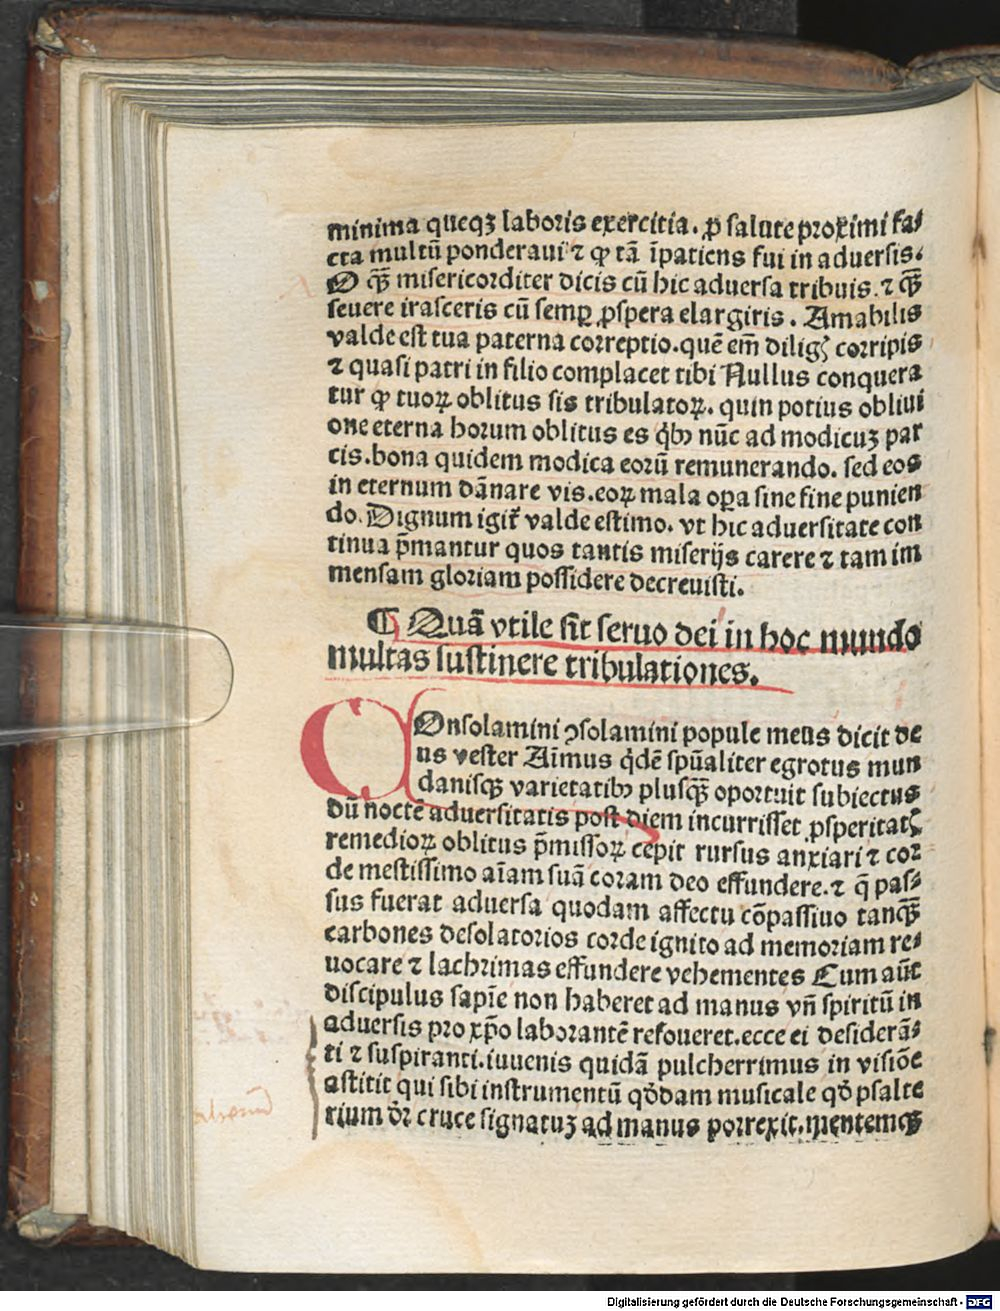 minima queqꝫ laboris exercitia. ꝓ salute proximi fa⸗
cta multū ponderaui ⁊ ꝙ tā īpatiens fui in aduersis.
O qꝫ̄ misericorditer dicis cū hic aduersa tribuis. ⁊ qꝫ̄
seuere irasceris cū semꝑ ꝓspera elargiris. Amabilis
valde est tua paterna correptio. quē em̄ diligꝭ corripis
⁊ quasi patri in filio complacet tibi Nullus conquera
tur ꝙ tuoꝝ oblitus sis tribulatoꝝ. quin potius obliui
one eterna horum oblitus es qͥbꝰ nūc ad modicuꝫ par
cis. bona quidem modica eorū remunerando. sed eos
in eternum dānare vis. eoꝝ mala oꝑa sine fine punien
do. Dignum igit᷑ valde estimo. vt hic aduersitate con
tinua p̄mantur quos tantis miserijs carere ⁊ tam im
mensam gloriam possidere decreuisti.
¶ Quā vtile sit seruo dei in hoc mundo
multas sustinere tribulationes.
COnsolamini ꝯsolamini popule meus dicit de
us vester Aīmus qͥdē spūaliter egrotus mun
danisqꝫ varietatibꝰ plusqꝫ̄ oportuit subiectus
dū noctē aduersitatis post diem incurrisset ꝓsperitatꝭ
remedioꝝ oblitus p̄missoꝝ cepit rursus anxiari ⁊ cor
de mestissimo aīam suā coram deo effundere. ⁊ q̄ pas⸗
sus fuerat aduersa quodam affectu cōpassiuo tanqꝫ̄
carbones desolatorios corde ignito ad memoriam re⸗
uocare ⁊ lachrimas effundere vehementes Cum aūt
discipulus sapīe non haberet ad manus vn̄ spiritū in
aduersis pro xp̄o laborantē refoueret. ecce ei desiderā⸗
ti ⁊ suspiranti. iuuenis quidā pulcherrimus in visiōe
astitit qui sibi instrumentū qͦddam musicale qͦd psalte
rium dr̄ cruce signatuꝫ ad manus porrexit. mentemqꝫ
Digitalisierung gefördert durch die Deutsche Forschungsgemeinschaft - DFG